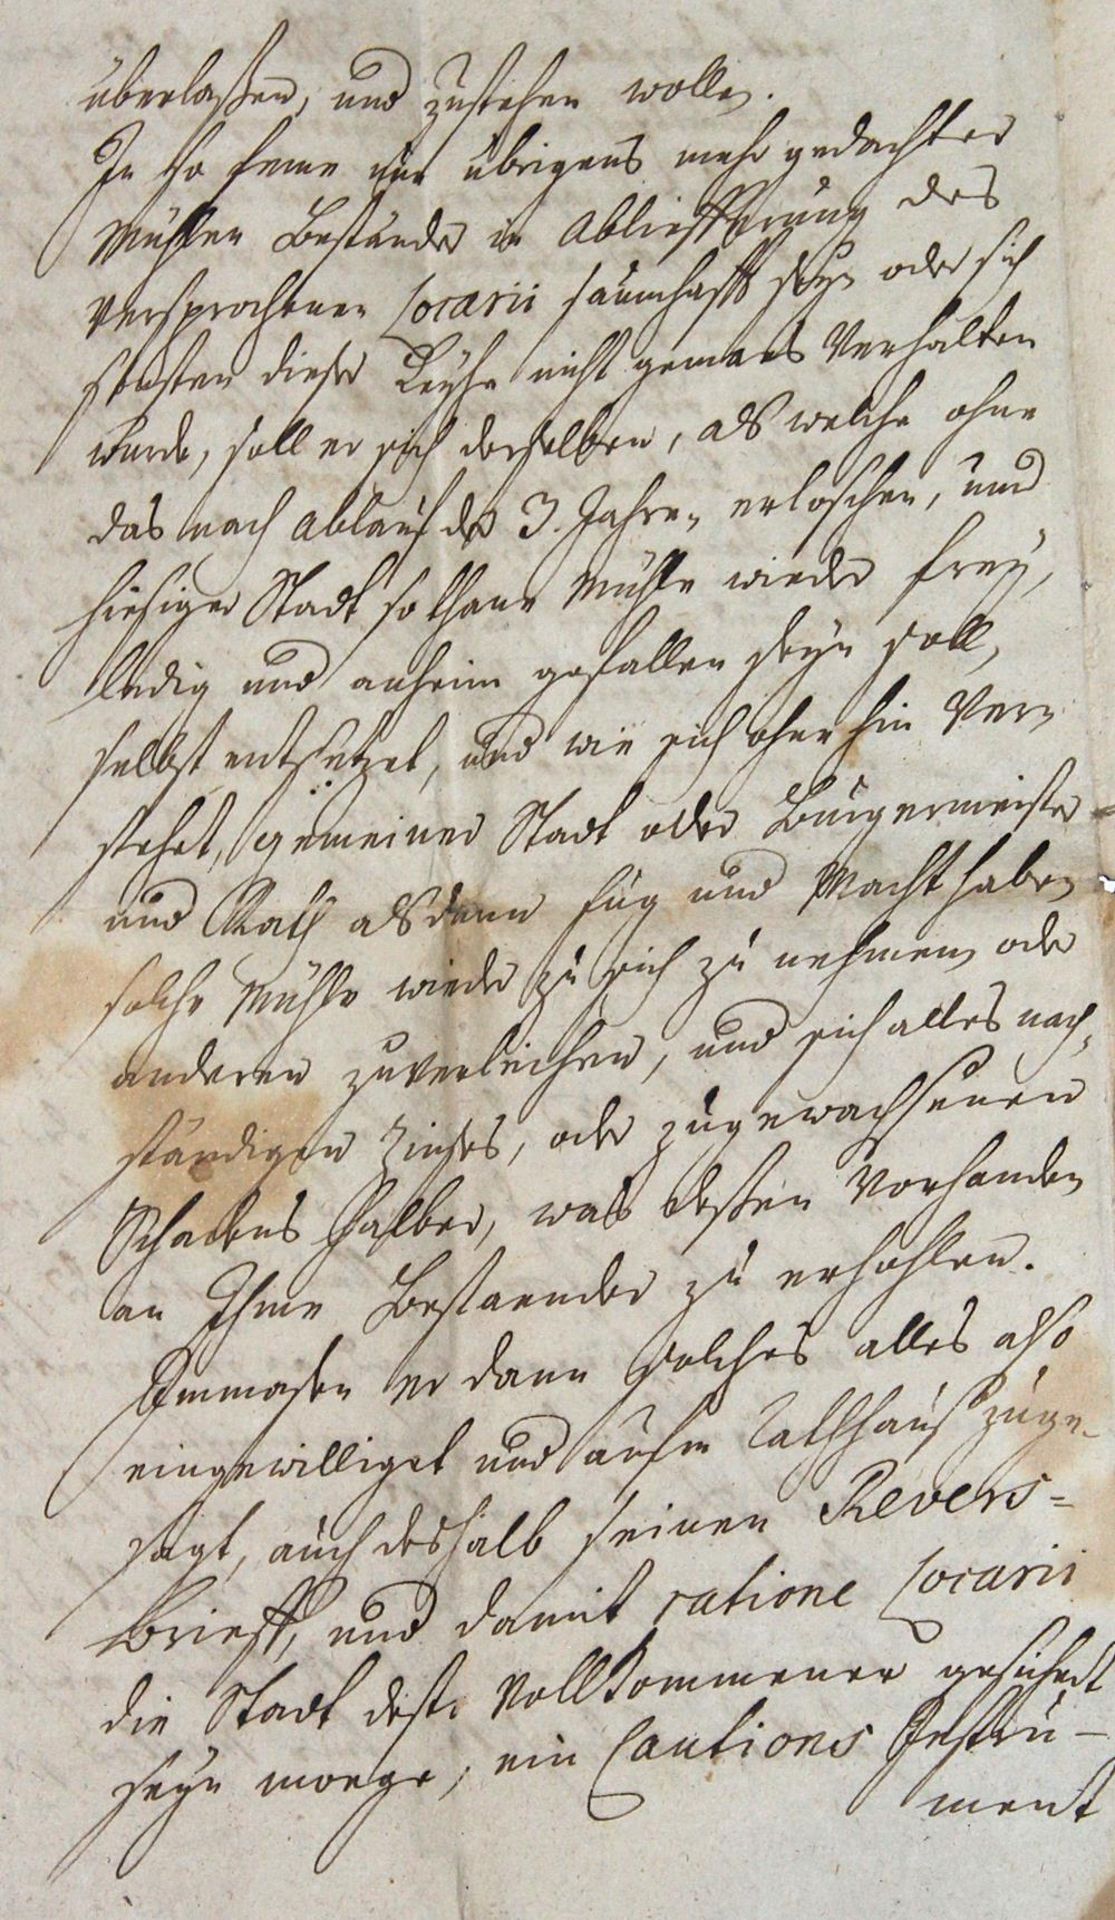 überlaßen, und zustehen wollen.
In so ferne nun übrigens mehr gedachter
Mühlen Beständer in Ablieffferung des
versprochenen Locarii saumhafft seyn oder sich
sonsten dieser Leyhe nicht gemaes Verhalten
wurde, soll er sich derselben, als welche ohne
das nach Ablauf der 3. Jahren erloschen, und
hiesiger Stadt sothane Mühle wieder frey,
ledig und anheim gefallen seyn soll,
selbst entsetzet, und wie sich ohne hin Ver-
stehet, gemeiner Stadt oder Burgermeister
und Rath alsdann fug und Macht haben
solche Mühle wieder zu sich zu nehmen, oder
anderen zuverleihen, und sich alles nach-
ständigen Zinses, oder zugewachsenen
Schadens halber, was dessen Vorhanden
an Ihme Bestaender zu erhohlen.
Immasen er dann solches alles also
eingewilliget und aufm Rathhauß zuge-
sagt, auch deshalb seinen Revers-
brieff, und damit ratione Locarii
die Stadt desto Vollkommener gesichert
seyn moege, ein Cautions Instru-
ment